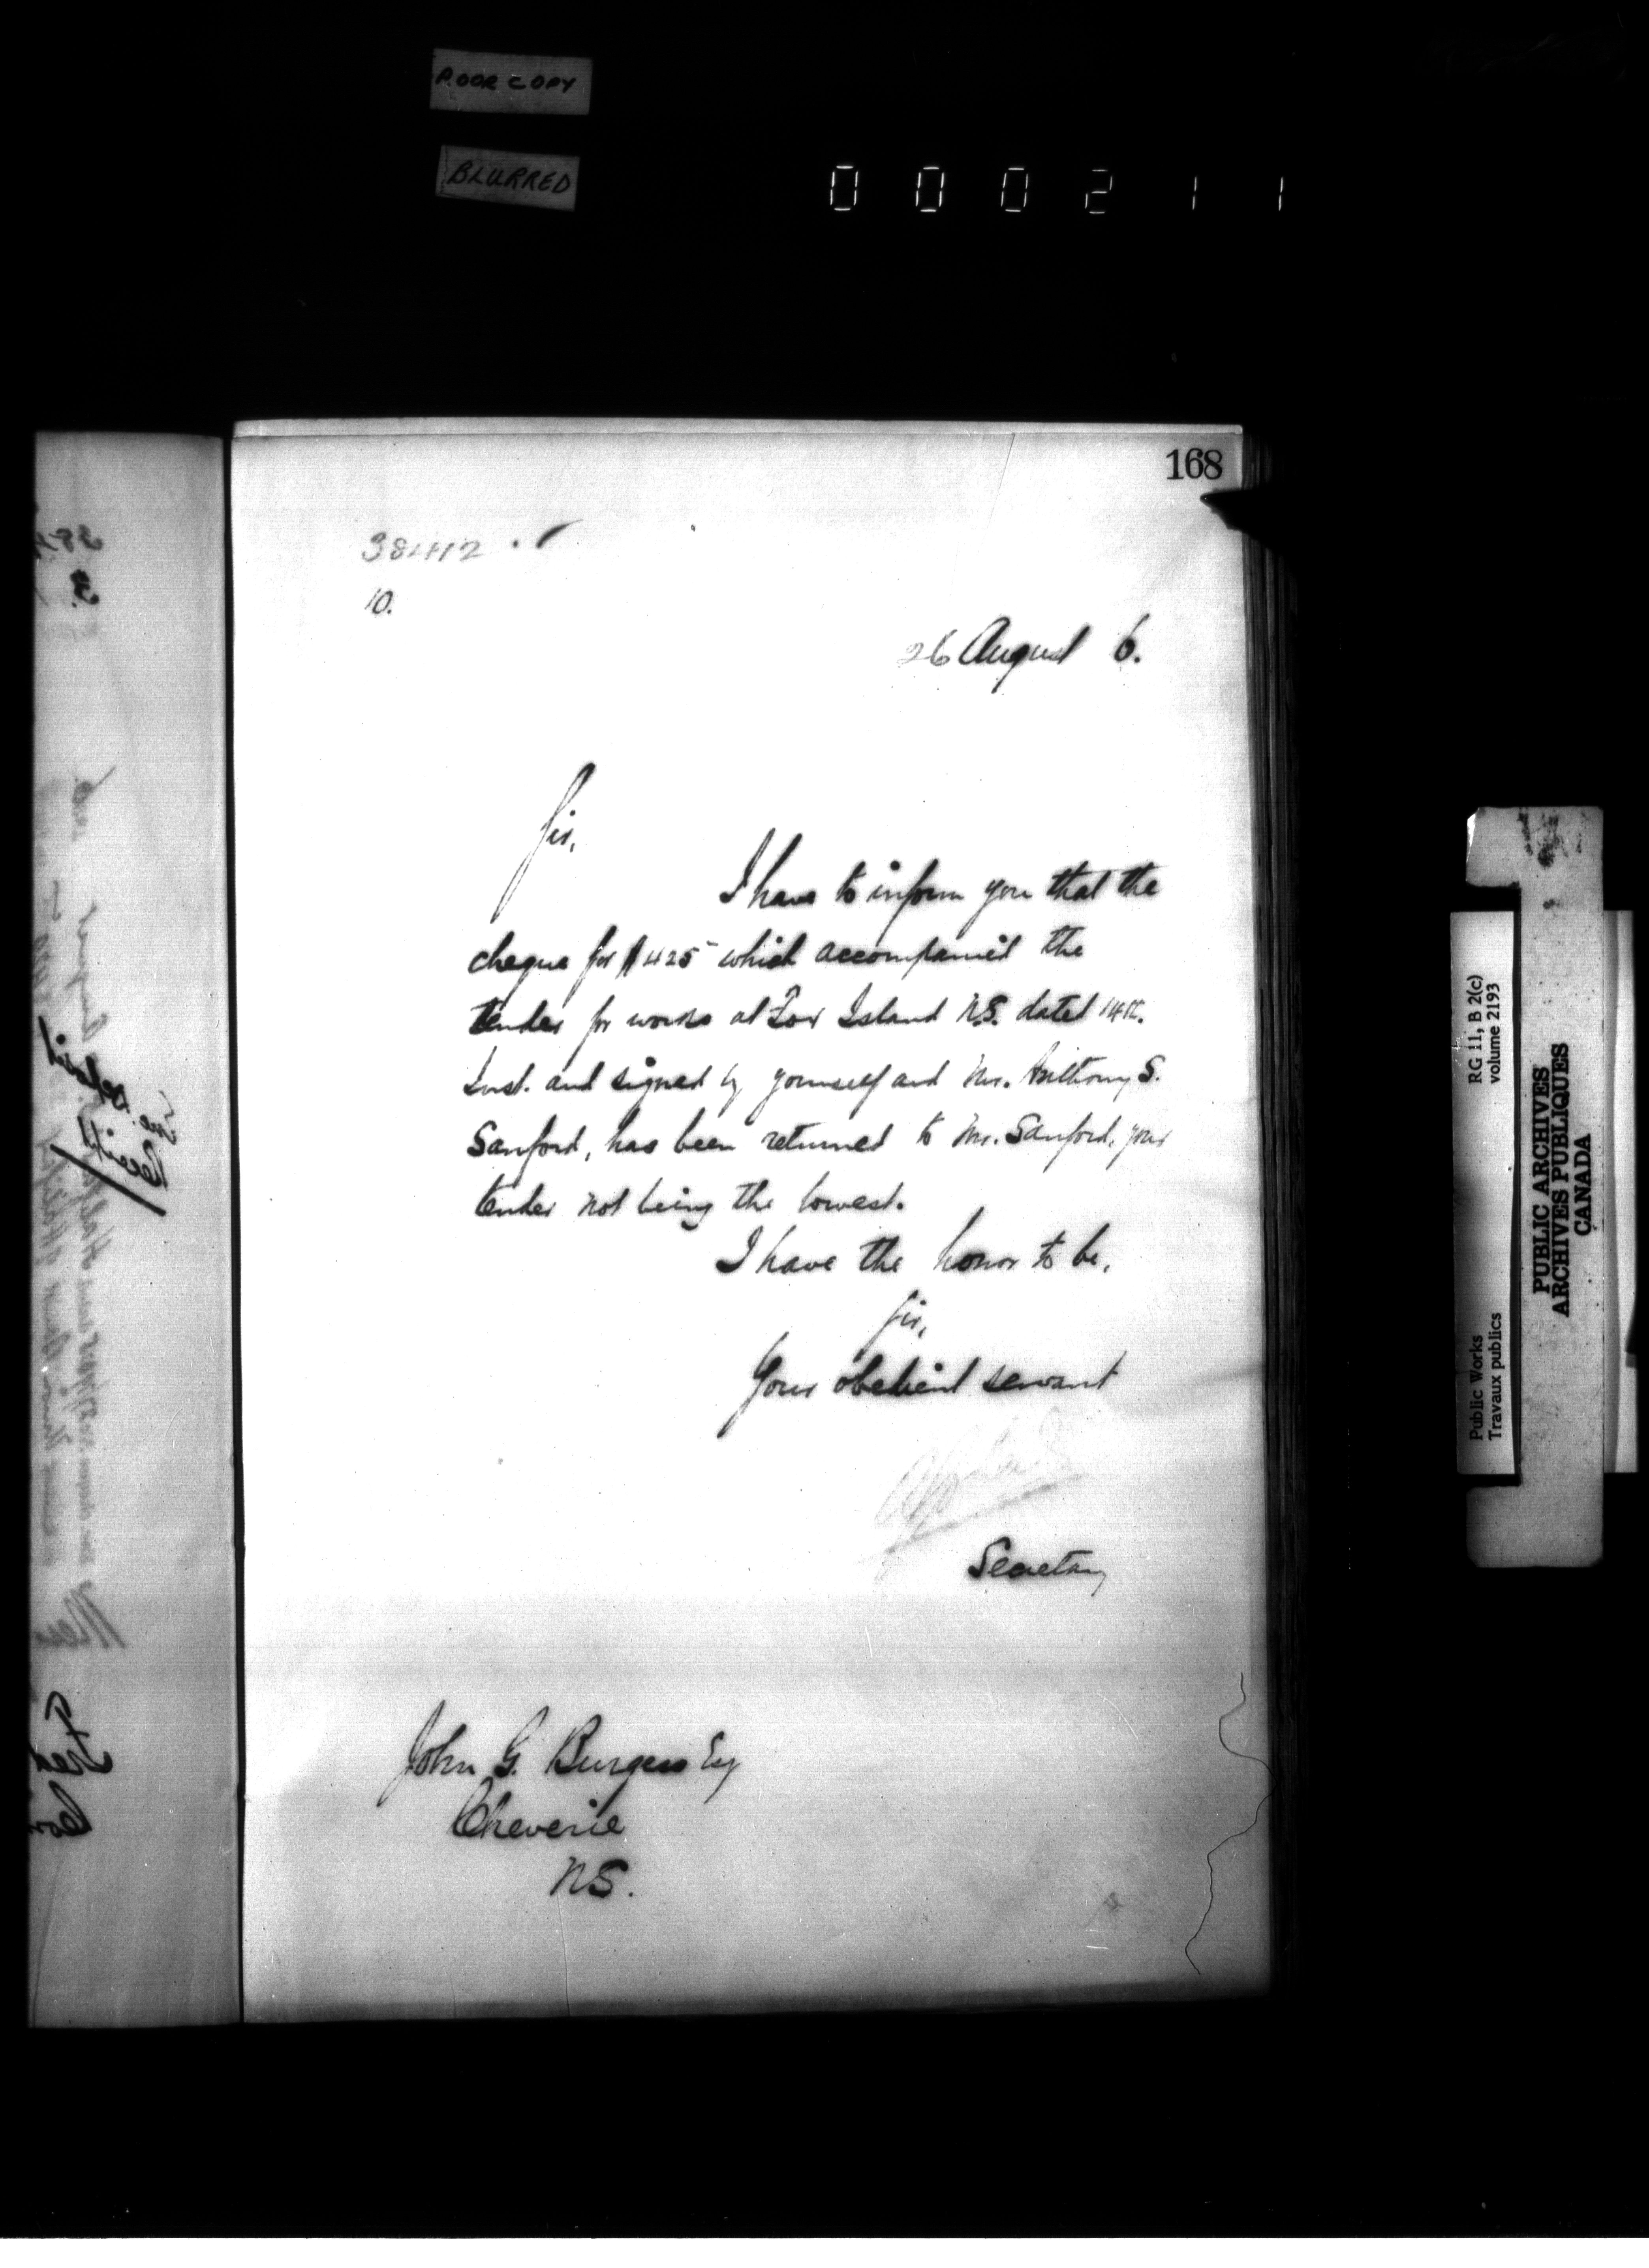 POOR COPY
BLURRED
000211
168
38412
10.
26 August 6.
Sir,
I have to inform you that the
cheque for $425 which accompanied the
tender for works at Fox Island N.S. dated 14th.
Inst. and signed by yourself and Mr. Anthony S.
Sanford, has been returned to Mr. Sanford, your
tender not being the lowest.
I have the honor to be,
Sir,
Your obedient servant
Secretary
John G. Burgess Esq
Cheverie
NS.
RG 11, B 2(c)
volume 2193
Public Works
Travaux publics
PUBLIC ARCHIVES
ARCHIVES PUBLIQUES
CANADA